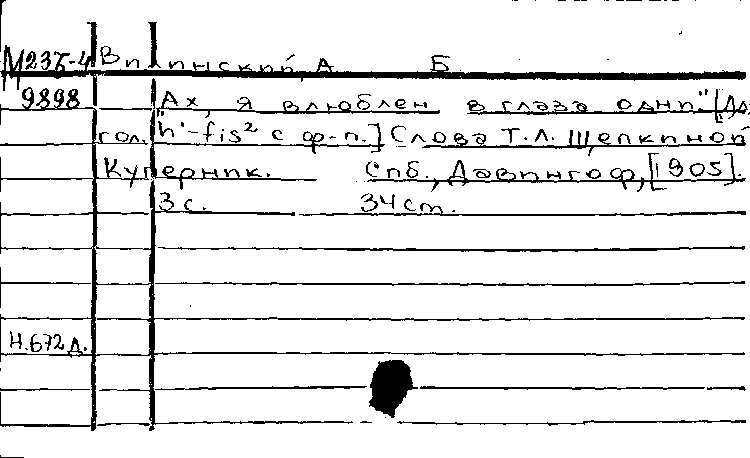 М23Б-4 Вилинский, А. Б
9898 "Ах, я влюблен в глаза одни". [Дл
гол. h'-fis² с ф-п.] Слова Т.Л. Щепкиной
Куперник. Спб., Давингоф, [1905].
3 с. 34 cm.
Н.672д.